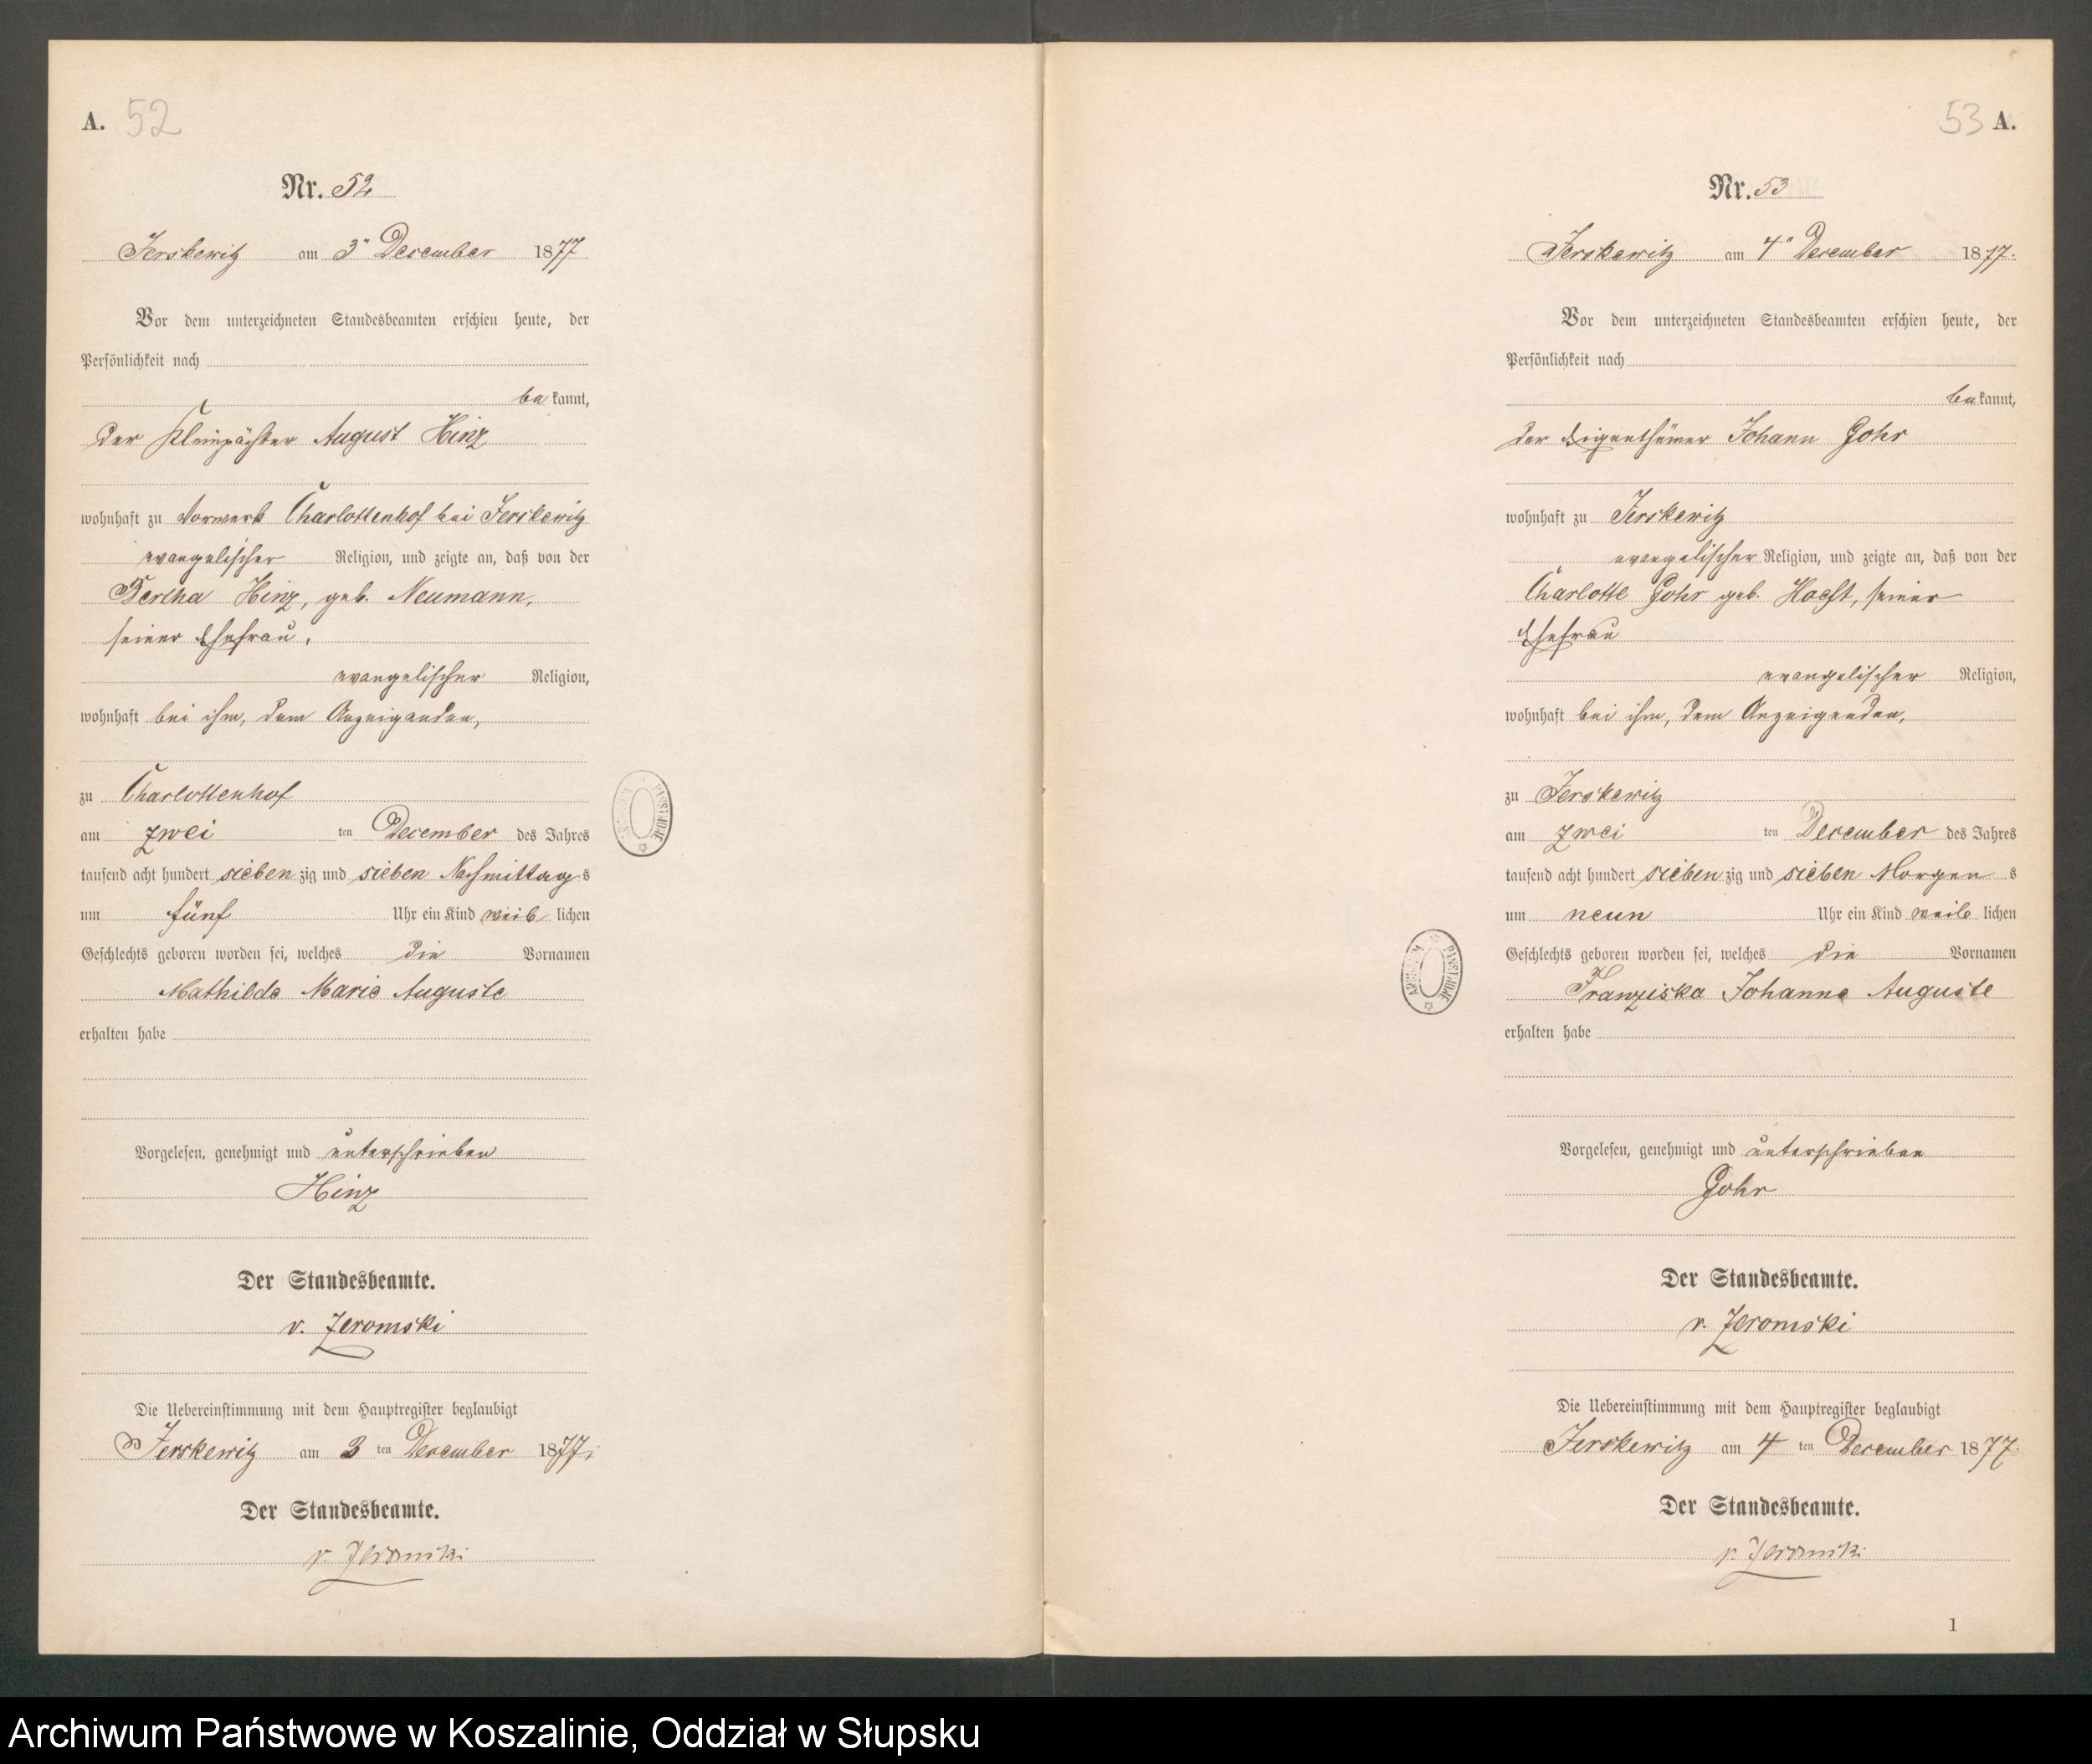 A. 52
Nr. 52
Jerskewitz am 3ⁿ December 1877
Vor dem unterzeichneten Standesbeamten erschien heute, der
Persönlichkeit nach
bekannt,
der Kleinpächter August Hinz
wohnhaft zu Vorwerk Charlottenhof bei Jerskewitz
evangelischer Religion, und zeigte an, daß von der
Bertha Hinz, geb. Neumann,
seiner Ehefrau,
evangelischer Religion,
wohnhaft bei ihm, dem Anzeigenden,
zu Charlottenhof
am zwei ten December des Jahres
tausend acht hundert siebenzig und sieben Nachmittags
um fünf Uhr ein Kind weiblichen
Geschlechts geboren worden sei, welches die Vornamen
Mathilde Marie Auguste
erhalten habe
Vorgelesen, genehmigt und unterschrieben
Hinz
Der Standesbeamte.
v. Zeromski
Die Uebereinstimmung mit dem Hauptregister beglaubigt
Jerskewitz am 3 ten December 1877.
Der Standesbeamte.
v. Zeromski
53 A.
Nr. 53
Jerskewitz am 4ⁿ December 1877.
Vor dem unterzeichneten Standesbeamten erschien heute, der
Persönlichkeit nach
bekannt,
der Eigenthümer Johann Gohr
wohnhaft zu Jerskewitz
evangelischer Religion, und zeigte an, daß von der
Charlotte Gohr geb. Hoeft, seiner
Ehefrau
evangelischer Religion,
wohnhaft bei ihm, dem Anzeigenden,
zu Jerskewitz
am zwei ten December des Jahres
tausend acht hundert siebenzig und sieben Morgens
um neun Uhr ein Kind weiblichen
Geschlechts geboren worden sei, welches die Vornamen
Franziska Johanne Auguste
erhalten habe
Vorgelesen, genehmigt und unterschrieben
Gohr
Der Standesbeamte.
v. Zeromski
Die Uebereinstimmung mit dem Hauptregister beglaubigt
Jerskewitz am 4 ten December 1877.
Der Standesbeamte.
v. Zeromski
1
Archiwum Państwowe w Koszalinie, Oddział w Słupsku